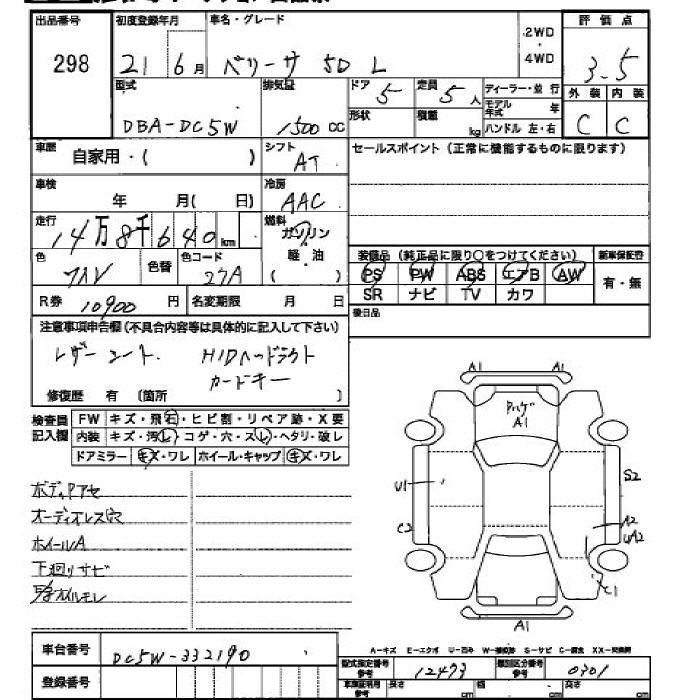 出品番号 初度登録年月 車名・グレード 2WD・4WD 評価点
298 21 6月 ベリーサ 50 L 3.5
型式 排気量 ドア 5 定員 5人 ディーラー・並行 外装 内装
DBA-DC5W 1500cc 形状 積載 kg モデル年式 年 ハンドル 左・右 C C
車歴 自家用・( ) シフト AT セールスポイント(正常に機能するものに限ります)
車検 年 月( 日) 冷房 AAC
走行 14万8千640km 燃料 ガソリン 軽・油 ( )
色 色替 色コード 27A 装備品(純正品に限り○をつけてください) 新車保証書
PS PW ABS エアB AW 有・無
SR ナビ TV カワ
R券 10900円 名変期限 月 日 後日品
注意事項申告欄(不具合内容等は具体的に記入して下さい)
レザーシート HIDヘッドライト
カードキー
修復歴 有 [箇所 ]
検査員記入欄 FW キズ・飛石・ヒビ割・リペア跡・X要
内装 キズ・汚れ・コゲ・穴・スレ・ヘタリ・破レ
ドアミラー キズ・ワレ ホイール・キャップ キズ・ワレ
A1 A1
A1
U1 S2
C2 A2
UA2
C1
A1
ボディ
オーディオレス
ホイールA
下廻りサビ
オイルモレ
A-キズ E-エクボ U-凹み S-サビ
車台番号 DC5W-332190 型式指定番号 参考 12473 類別区分番号 参考 0301
登録番号 長さ cm 幅 cm 高さ cm